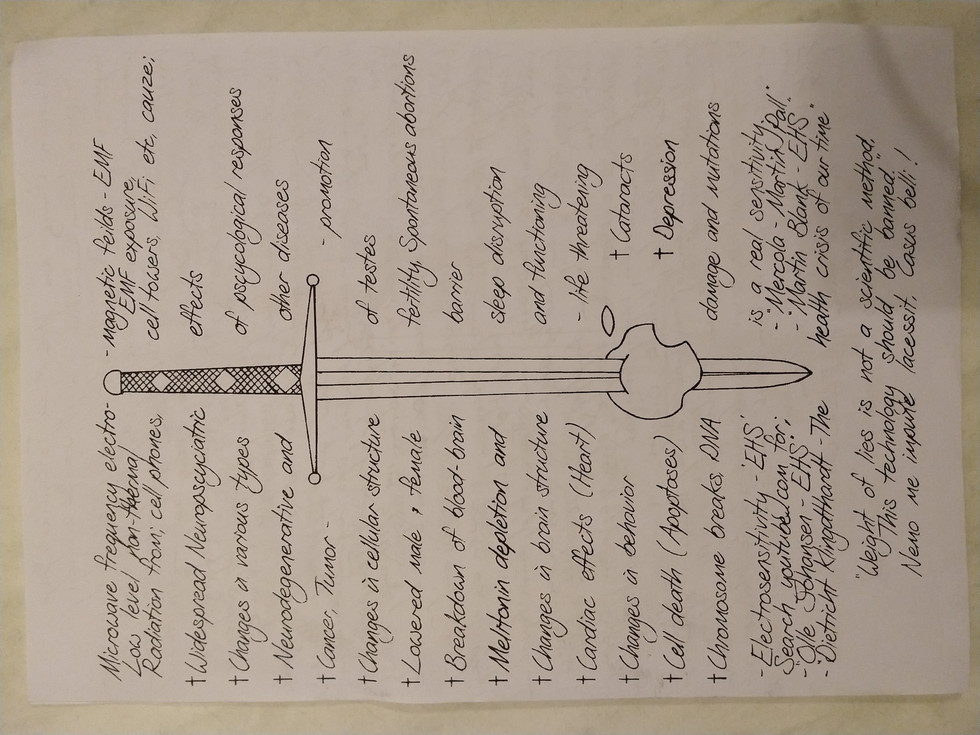 Microwave frequency electro- - magnetic feilds - EMF
Low level, non-thermal EMF exposure,
Radiation from: cell phones, cell towers, WiFi etc, cauze;
† Widespread Neuropscyciatric effects
† Changes in various types of pscycological responses
† Neurodegenerative and other diseases
† Cancer, Tumor - - promotion
† Changes in cellular structure of testes
† Lowered male, female fertility, Spontaneous abortions
† Breakdown of blood-brain barrier
† Meltonin depletion and sleep disruption
† Changes in brain structure and functioning
† Cardiac effects (Heart) - life threatening
† Changes in behavior † Cataracts
† Cell death (Apoptoses) † Depression
† Chromosome breaks, DNA damage and mutations
- Electrosensitivity - 'EHS' is a real sensitivity.
Search youtube.com for: - "Mercola - Martin Pall".
- "Olle Johansen - EHS", - "Martin Blank - EHS"
- "Dietricht Klinghhardt - The health crisis of our time".
"Weight of lies is not a scientific method.
This technology should be banned."
Nemo me impune lacessit. Casus belli!